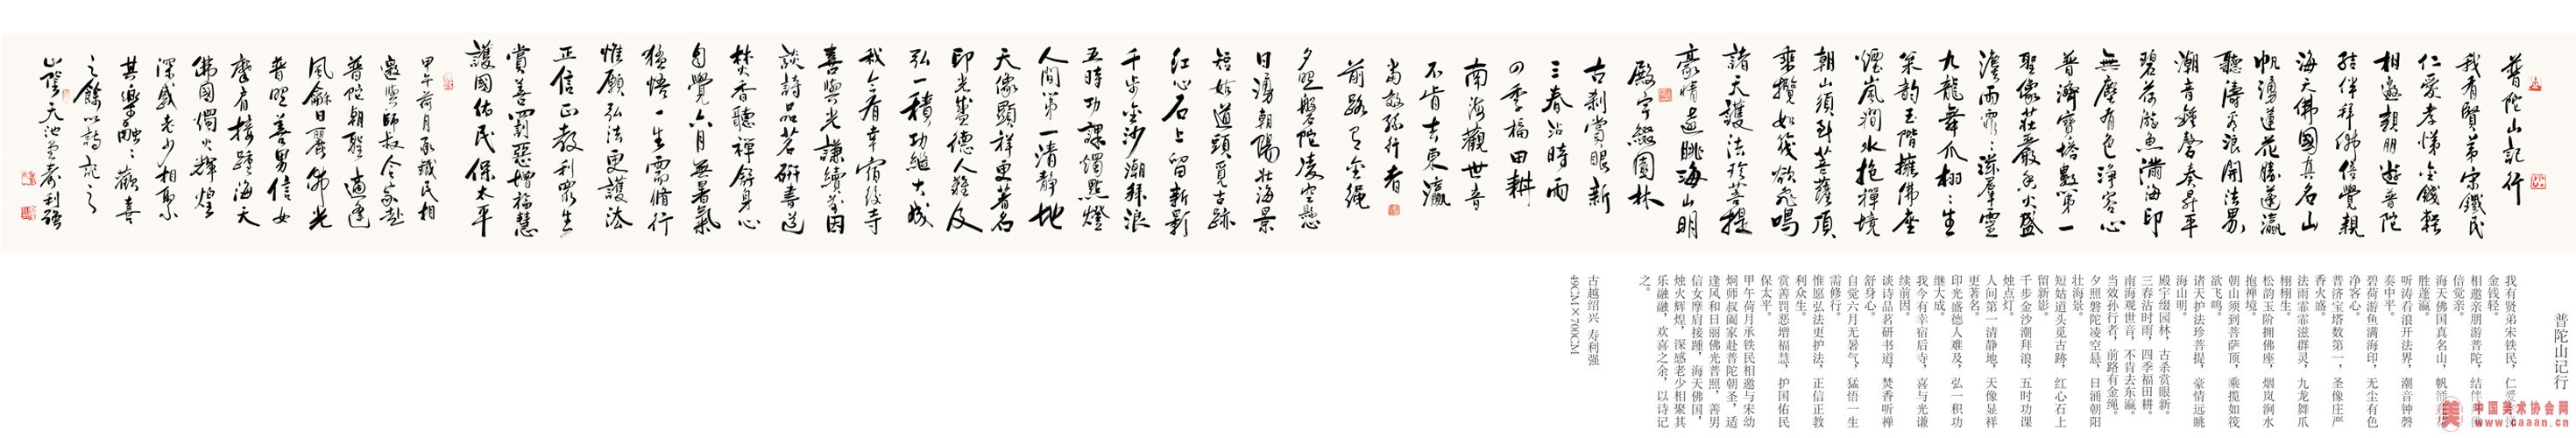 普陀山记行
我有賢弟宋鐵民
仁愛孝悌金錢輕
相邀親朋遊普陀
結伴拜佛倍覺親
海天佛國真名山
帆湧蓮花勝蓬瀛
聽濤看浪開法界
潮音鐘磬奏昇平
碧荷游魚滿海印
無塵有色淨客心
普濟寶塔數第一
聖像莊嚴香火盛
法雨霏霏滋羣靈
九龍舞爪栩栩生
松韵玉階擁佛座
煙嵐澗水抱禪境
朝山須到菩薩頂
乘攬如筏欲飛鳴
諸天護法珍菩提
豪情遠眺海山明
殿宇綴園林
古刹賞眼新
三春沾時雨
四季福田耕
南海觀世音
不肯去東瀛
當效孫行者
前路有金繩
夕照磐陀凌空懸
日湧朝陽壯海景
短姑道頭覓古跡
红心石上留新影
千步金沙潮拜浪
五時功課燭點燈
人間第一清靜地
天像顯祥更著名
印光盛德人難及
弘一積功繼大成
我今有幸宿後寺
喜與光謙續前因
談詩品茗研書道
焚香聽禪舒身心
自覺六月無暑氣
猛悟一生需脩行
惟願弘法更護法
正信正教利眾生
賞善罰惡增福慧
護國佑民保太平
甲午荷月承鐵民相
邀與師叔合家赴
普陀朝聖適逢
風和日麗佛光
普照善男信女
摩肩接踵海天
佛國燭火輝煌
深感老少相聚
其樂融融歡喜
之餘以詩記之
普陀山记行
我有贤弟宋铁民，仁爱孝悌
金钱轻。
相邀亲朋游普陀，结伴拜佛
倍觉亲。
海天佛国真名山，帆涌莲花
胜蓬瀛。
听涛看浪开法界，潮音钟磬
奏中平。
碧荷游鱼满海印，无尘有色
净客心。
普济宝塔数第一，圣像庄严
香火盛。
法雨霏霏滋群灵，九龙舞爪
栩栩生。
松韵玉阶拥佛座，烟岚涧水
抱禅境。
朝山须到菩萨顶，乘揽如筏
欲飞鸣。
诸天护法珍菩提，豪情远眺
海山明。
殿宇缀园林，古杀赏眼新。
三春沾时雨，四季福田耕。
南海观世音，不肯去东瀛。
当效孙行者，前路有金绳。
夕照磐陀凌空悬，日涌朝阳
壮海景。
短姑道头觅古跡，红心石上
留新影。
千步金沙潮拜浪，五时功课
烛点灯。
人间第一清静地，天像显祥
更著名。
印光盛德人难及，弘一积功
继大成。
我今有幸宿后寺，喜与光谦
续前因。
谈诗品茗研书道，焚香听禅
舒身心。
自觉六月无暑气，猛悟一生
需修行。
惟愿弘法更护法，正信正教
利众生。
赏善罚恶增福慧，护国佑民
保太平。
甲午荷月承铁民相邀与宋幼
炯师叔阖家赴普陀朝圣，适
逢风和日丽佛光普照，善男
信女摩肩接踵，海天佛国，
烛火辉煌，深感老少相聚其
乐融融，欢喜之余，以诗记
之。
古越绍兴 寿利强
49CM×700CM
中国美术协会网
www.caaan.cn